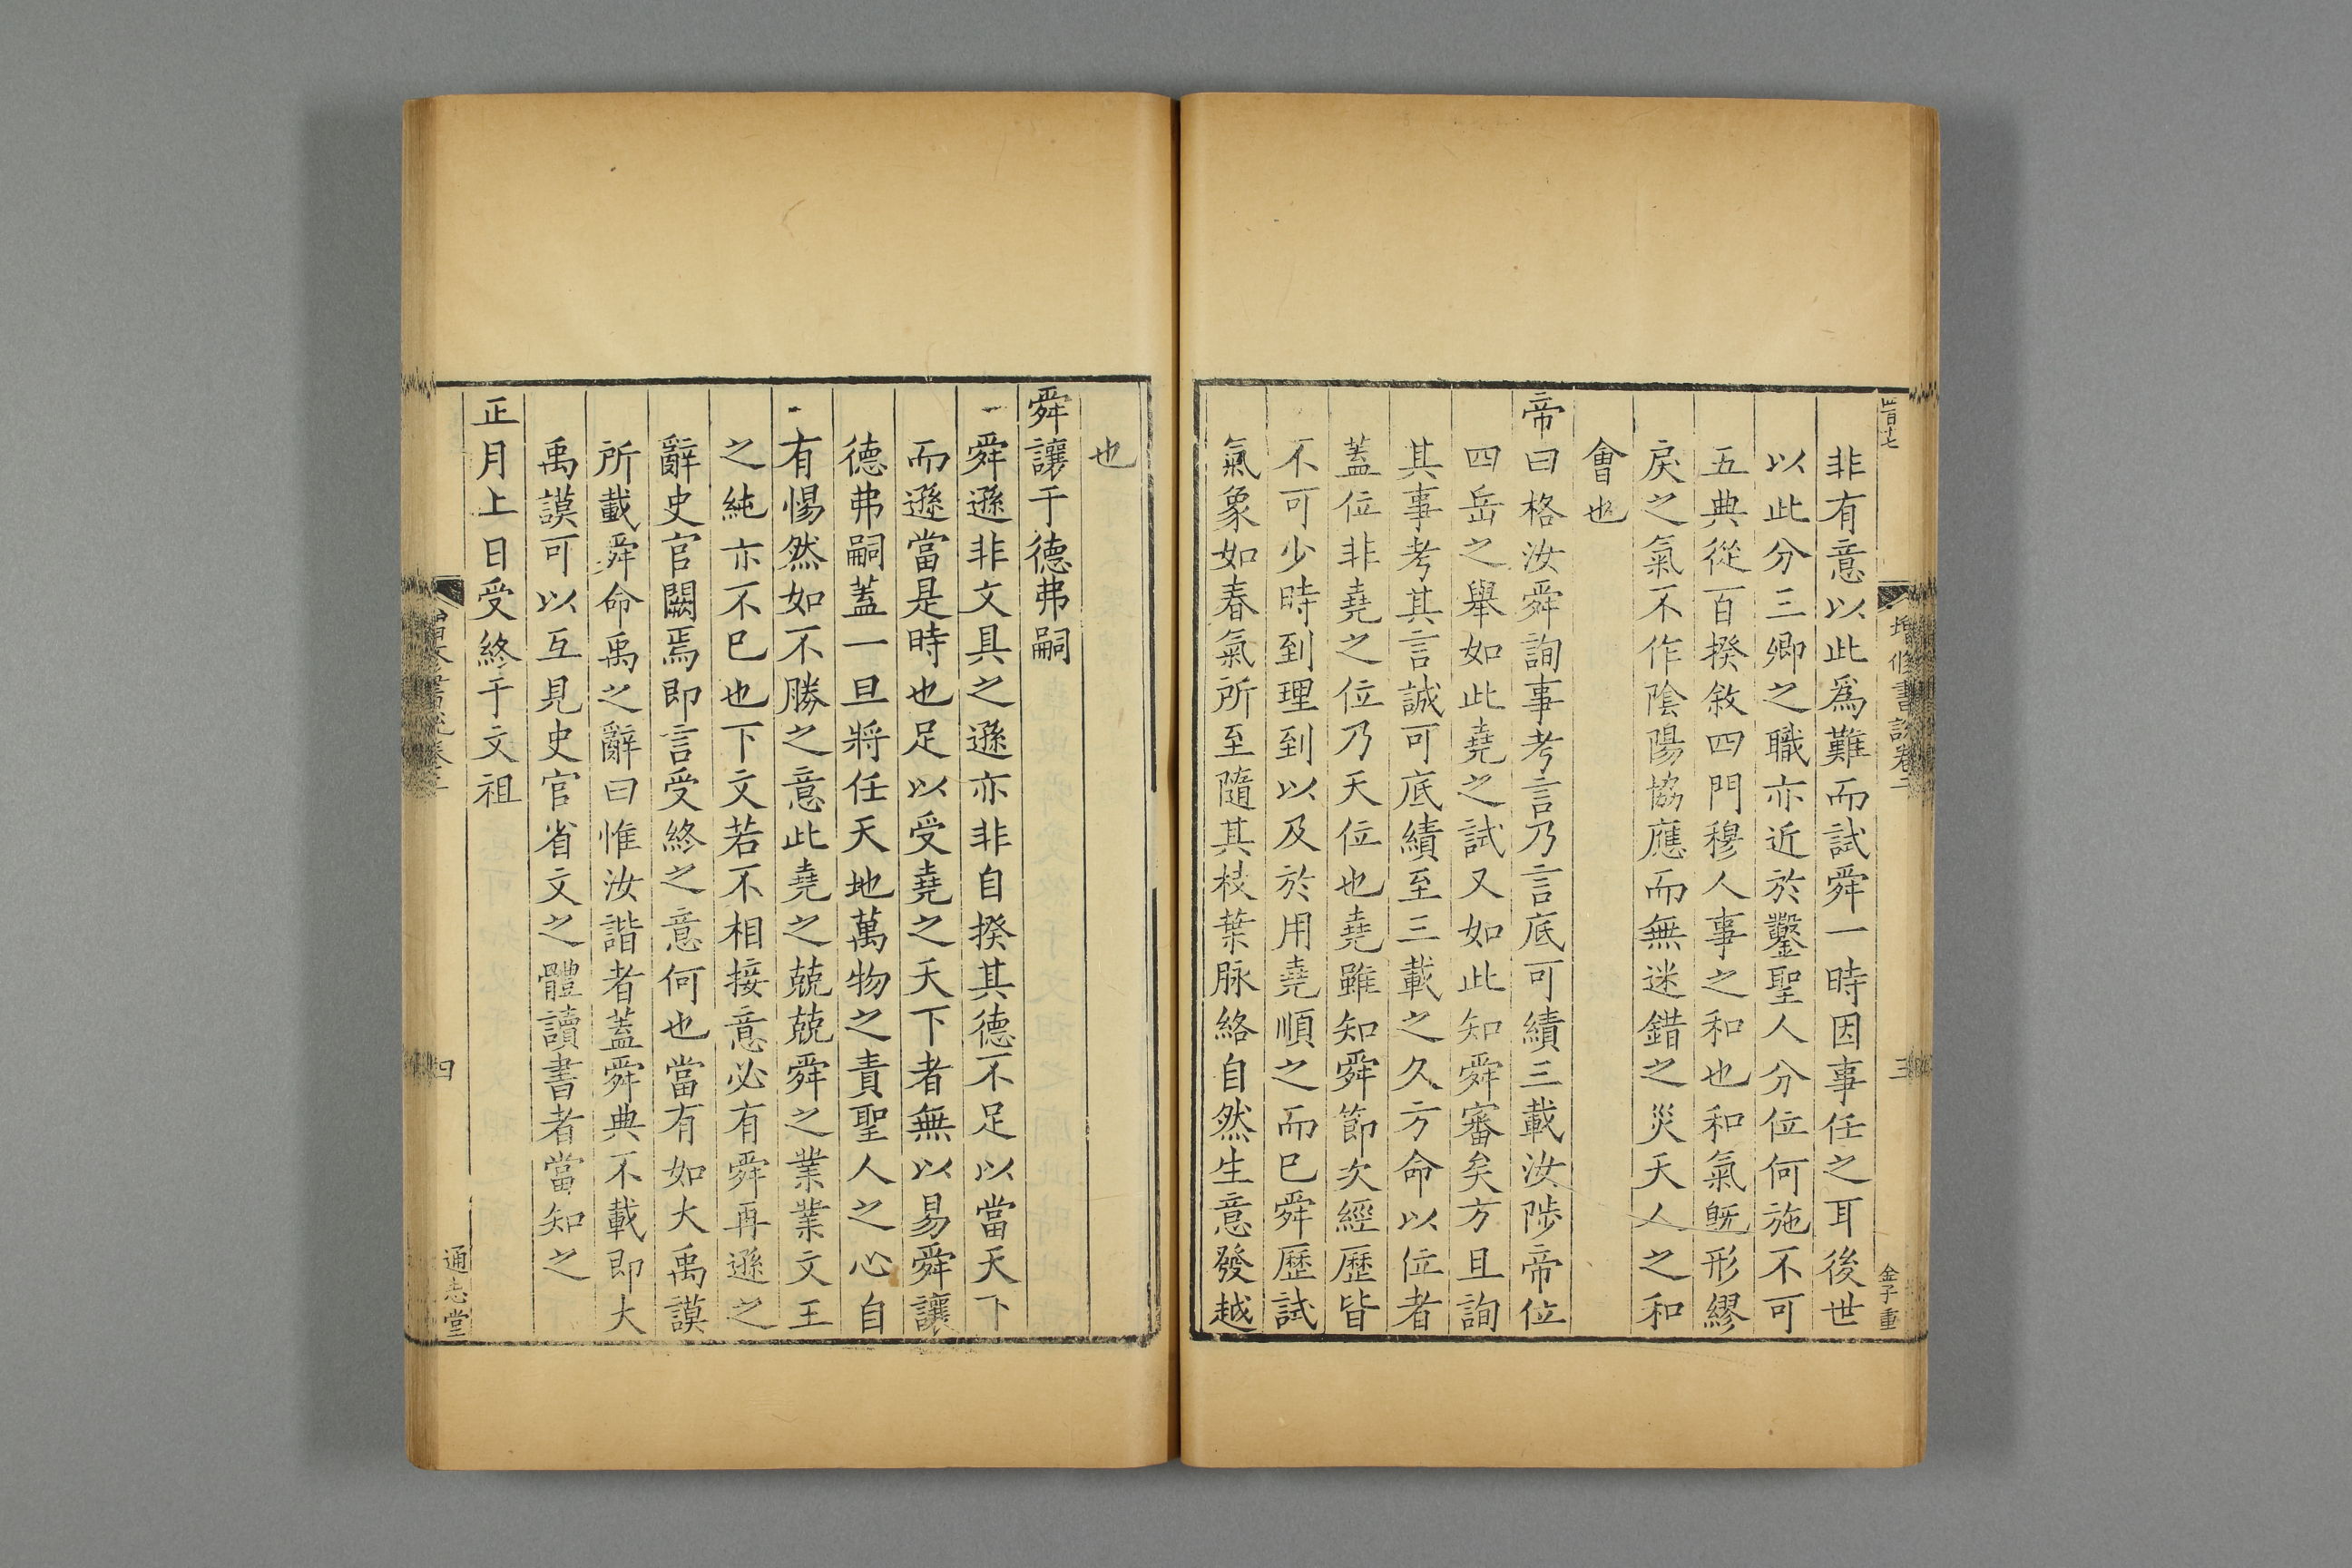 增修書說卷二
三
金子重
非有意以此為難而試舜一時因事任之耳後世
以此分三卿之職亦近於鑿聖人分位何施不可
五典從百揆敘四門穆人事之和也和氣旣形繆
戾之氣不作陰陽協應而無迷錯之災天人之和
會也
帝曰格汝舜詢事考言乃言底可績三載汝陟帝位
四岳之舉如此堯之試又如此知舜審矣方且詢
其事考其言誠可底績至三載之久方命以位者
蓋位非堯之位乃天位也堯雖知舜節次經歷皆
不可少時到理到以及於用堯順之而已舜歷試
氣象如春氣所至隨其枝葉脉絡自然生意發越
也
舜讓于德弗嗣
舜遜非文具之遜亦非自揆其德不足以當天下
而遜當是時也足以受堯之天下者無以易舜讓
德弗嗣蓋一旦將任天地萬物之責聖人之心自
有惕然如不勝之意此堯之兢兢舜之業業文王
之純亦不已也下文若不相接意必有舜再遜之
辭史官闕焉即言受終之意何也當有如大禹謨
所載舜命禹之辭曰惟汝諧者蓋舜典不載即大
禹謨可以互見史官省文之體讀書者當知之
正月上日受終于文祖
四
通志堂